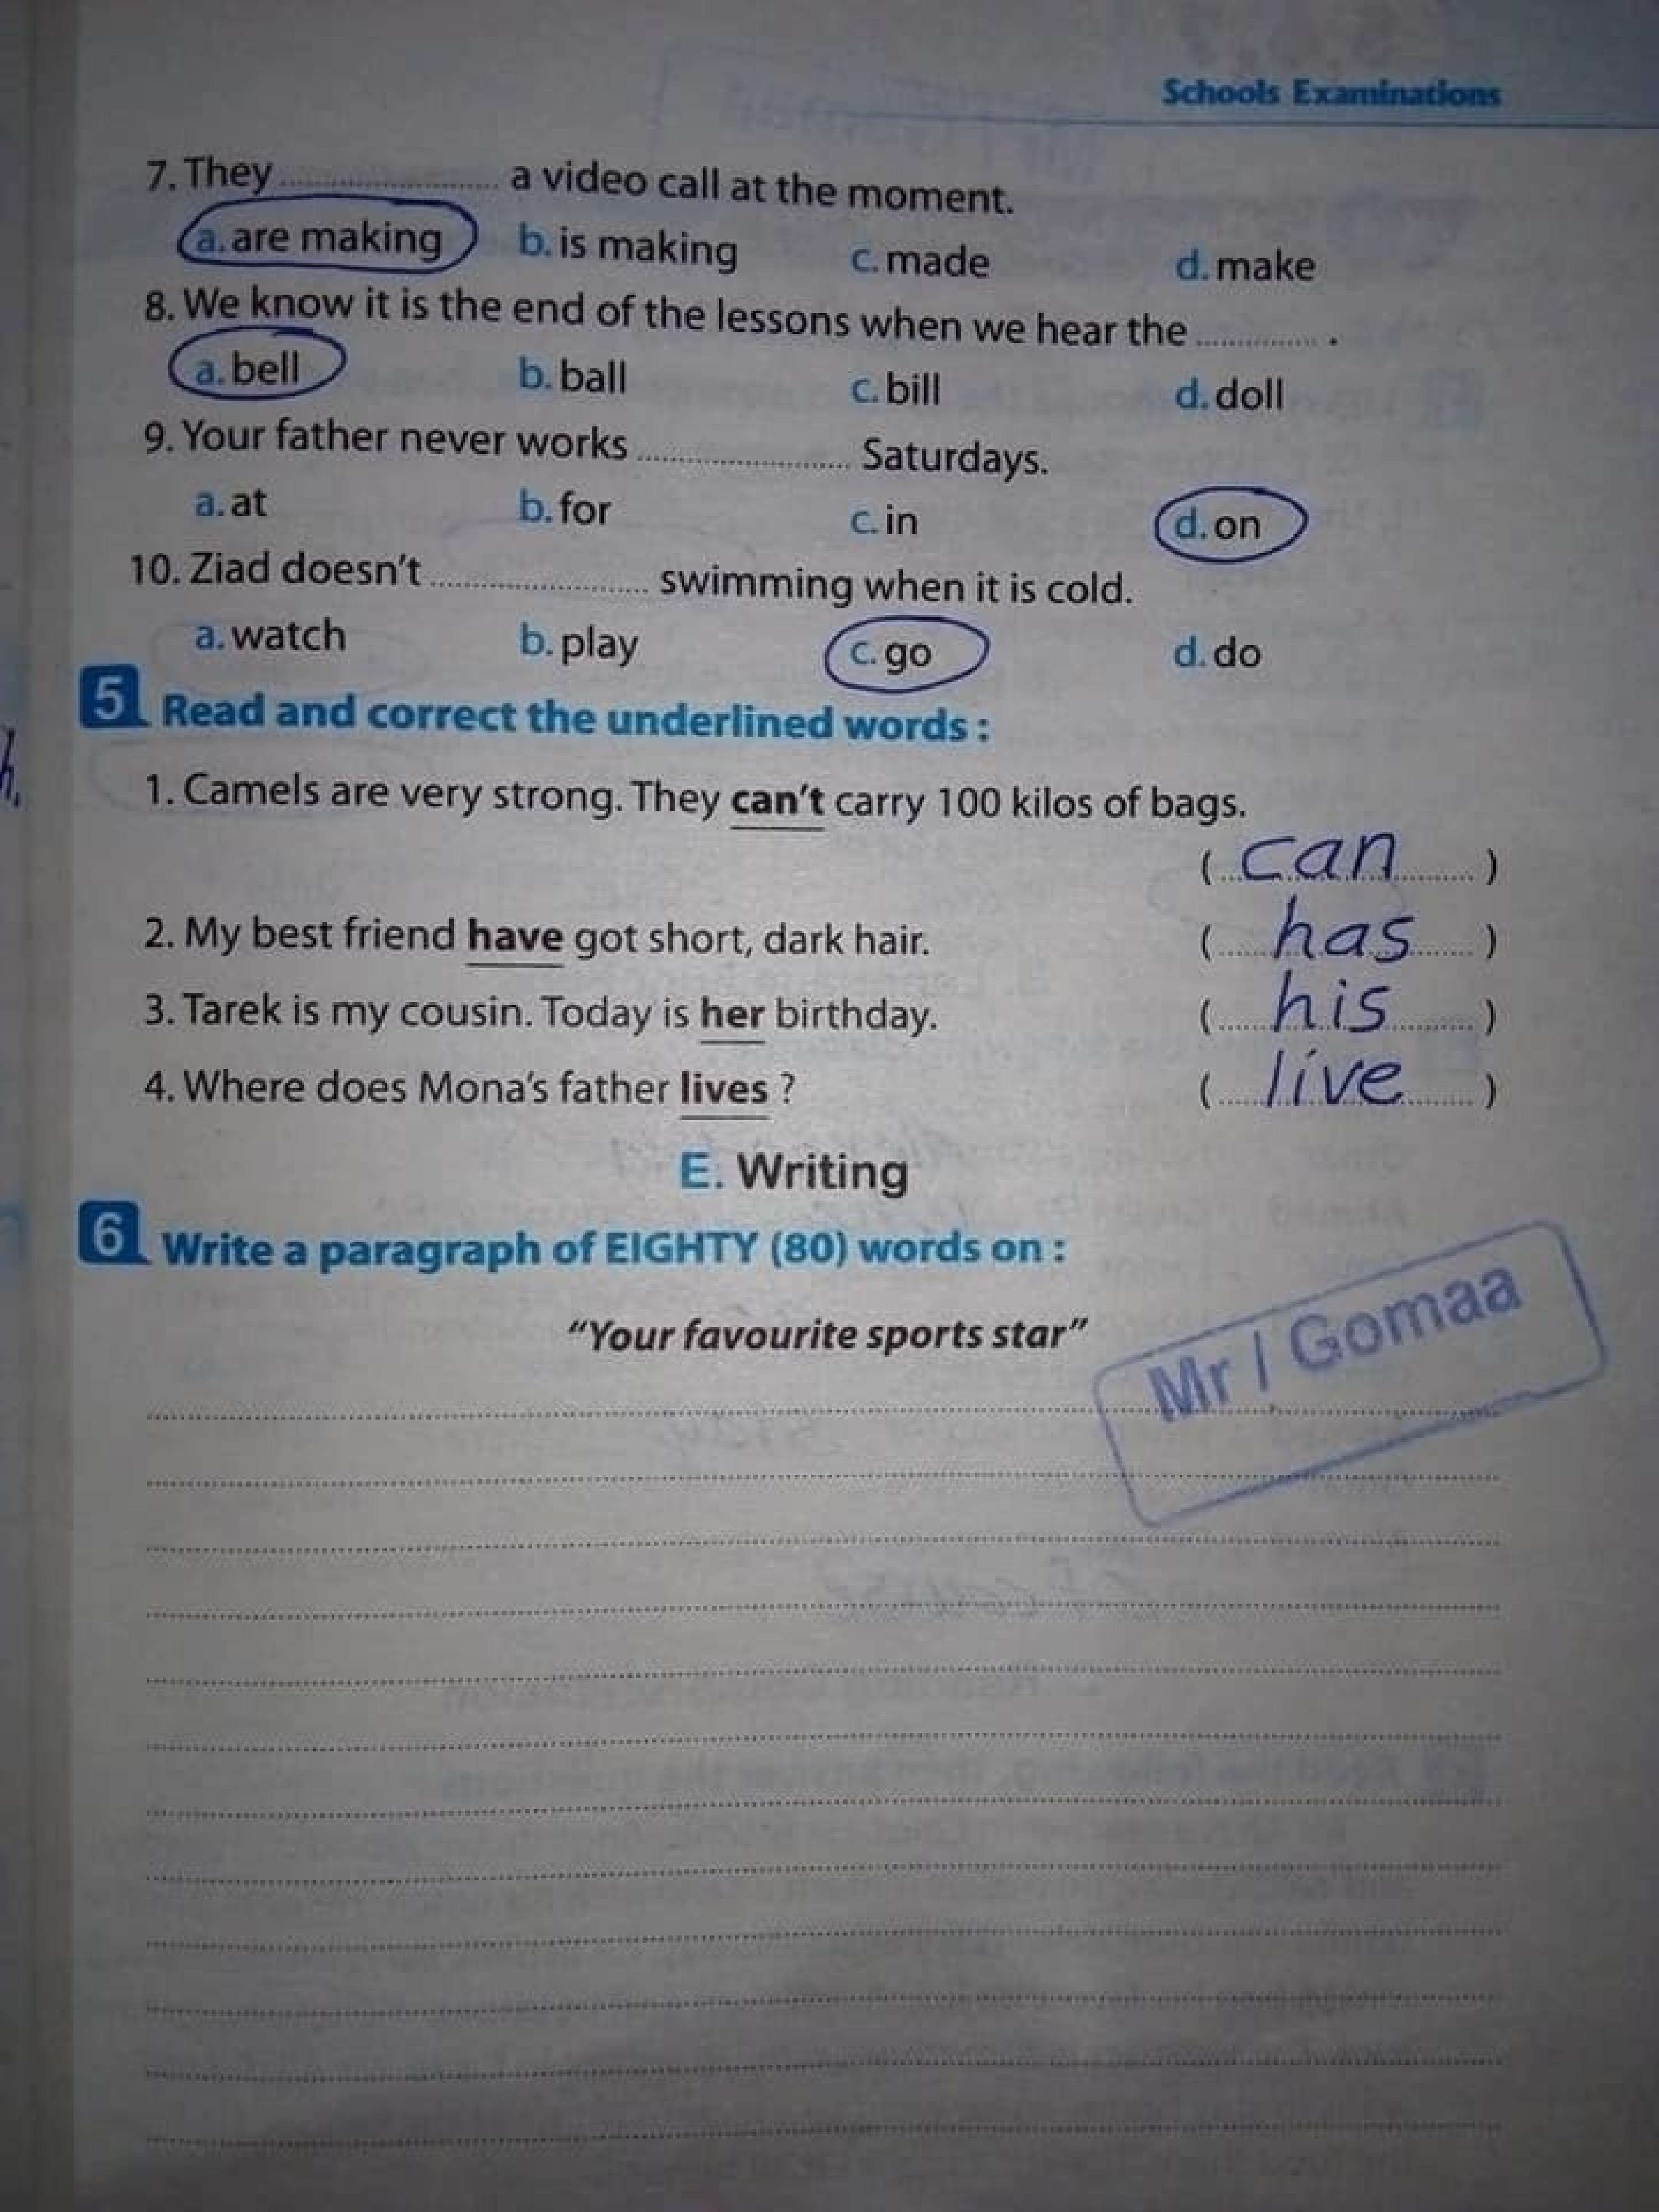 Schools Examinations
7. They .................... a video call at the moment.
a. are making b. is making c. made d. make
8. We know it is the end of the lessons when we hear the ............ .
a. bell b. ball c. bill d. doll
9. Your father never works .................... Saturdays.
a. at b. for c. in d. on
10. Ziad doesn't .................... swimming when it is cold.
a. watch b. play c. go d. do
5 Read and correct the underlined words :
1. Camels are very strong. They can't carry 100 kilos of bags.
( can )
2. My best friend have got short, dark hair. ( has )
3. Tarek is my cousin. Today is her birthday. ( his )
4. Where does Mona's father lives ? ( live )
E. Writing
6 Write a paragraph of EIGHTY (80) words on :
"Your favourite sports star"
Mr / Gomaa